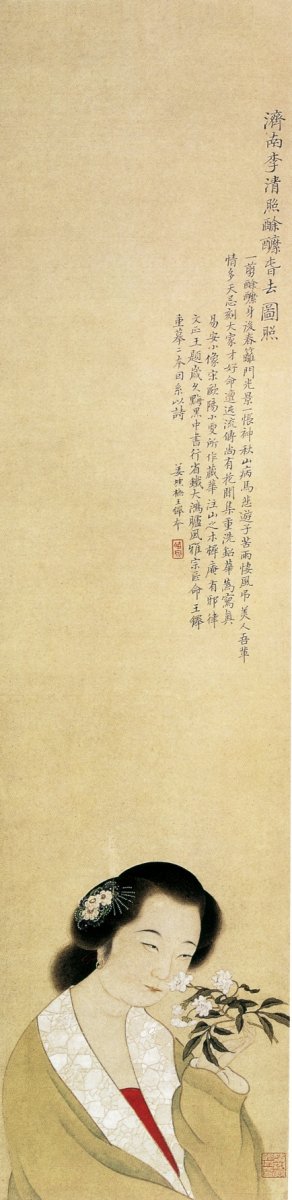 濟南李清照酴醾春去圖照
一菊酴醾身後春籬門光景一悵神秋山病馬悲遊子苦雨悽風弔美人吾輩
情多天忌刻大家才好命邅迍流傳尚有花間集重洗鉛華為寫真
易安小像宋歐陽小雯所作藏華注山之木樨庵有邵律
文正王題歲久黝黑中書行省鐵大鴻臚風雅宗臣命王鐸
重摹二本因系以詩
王鐸